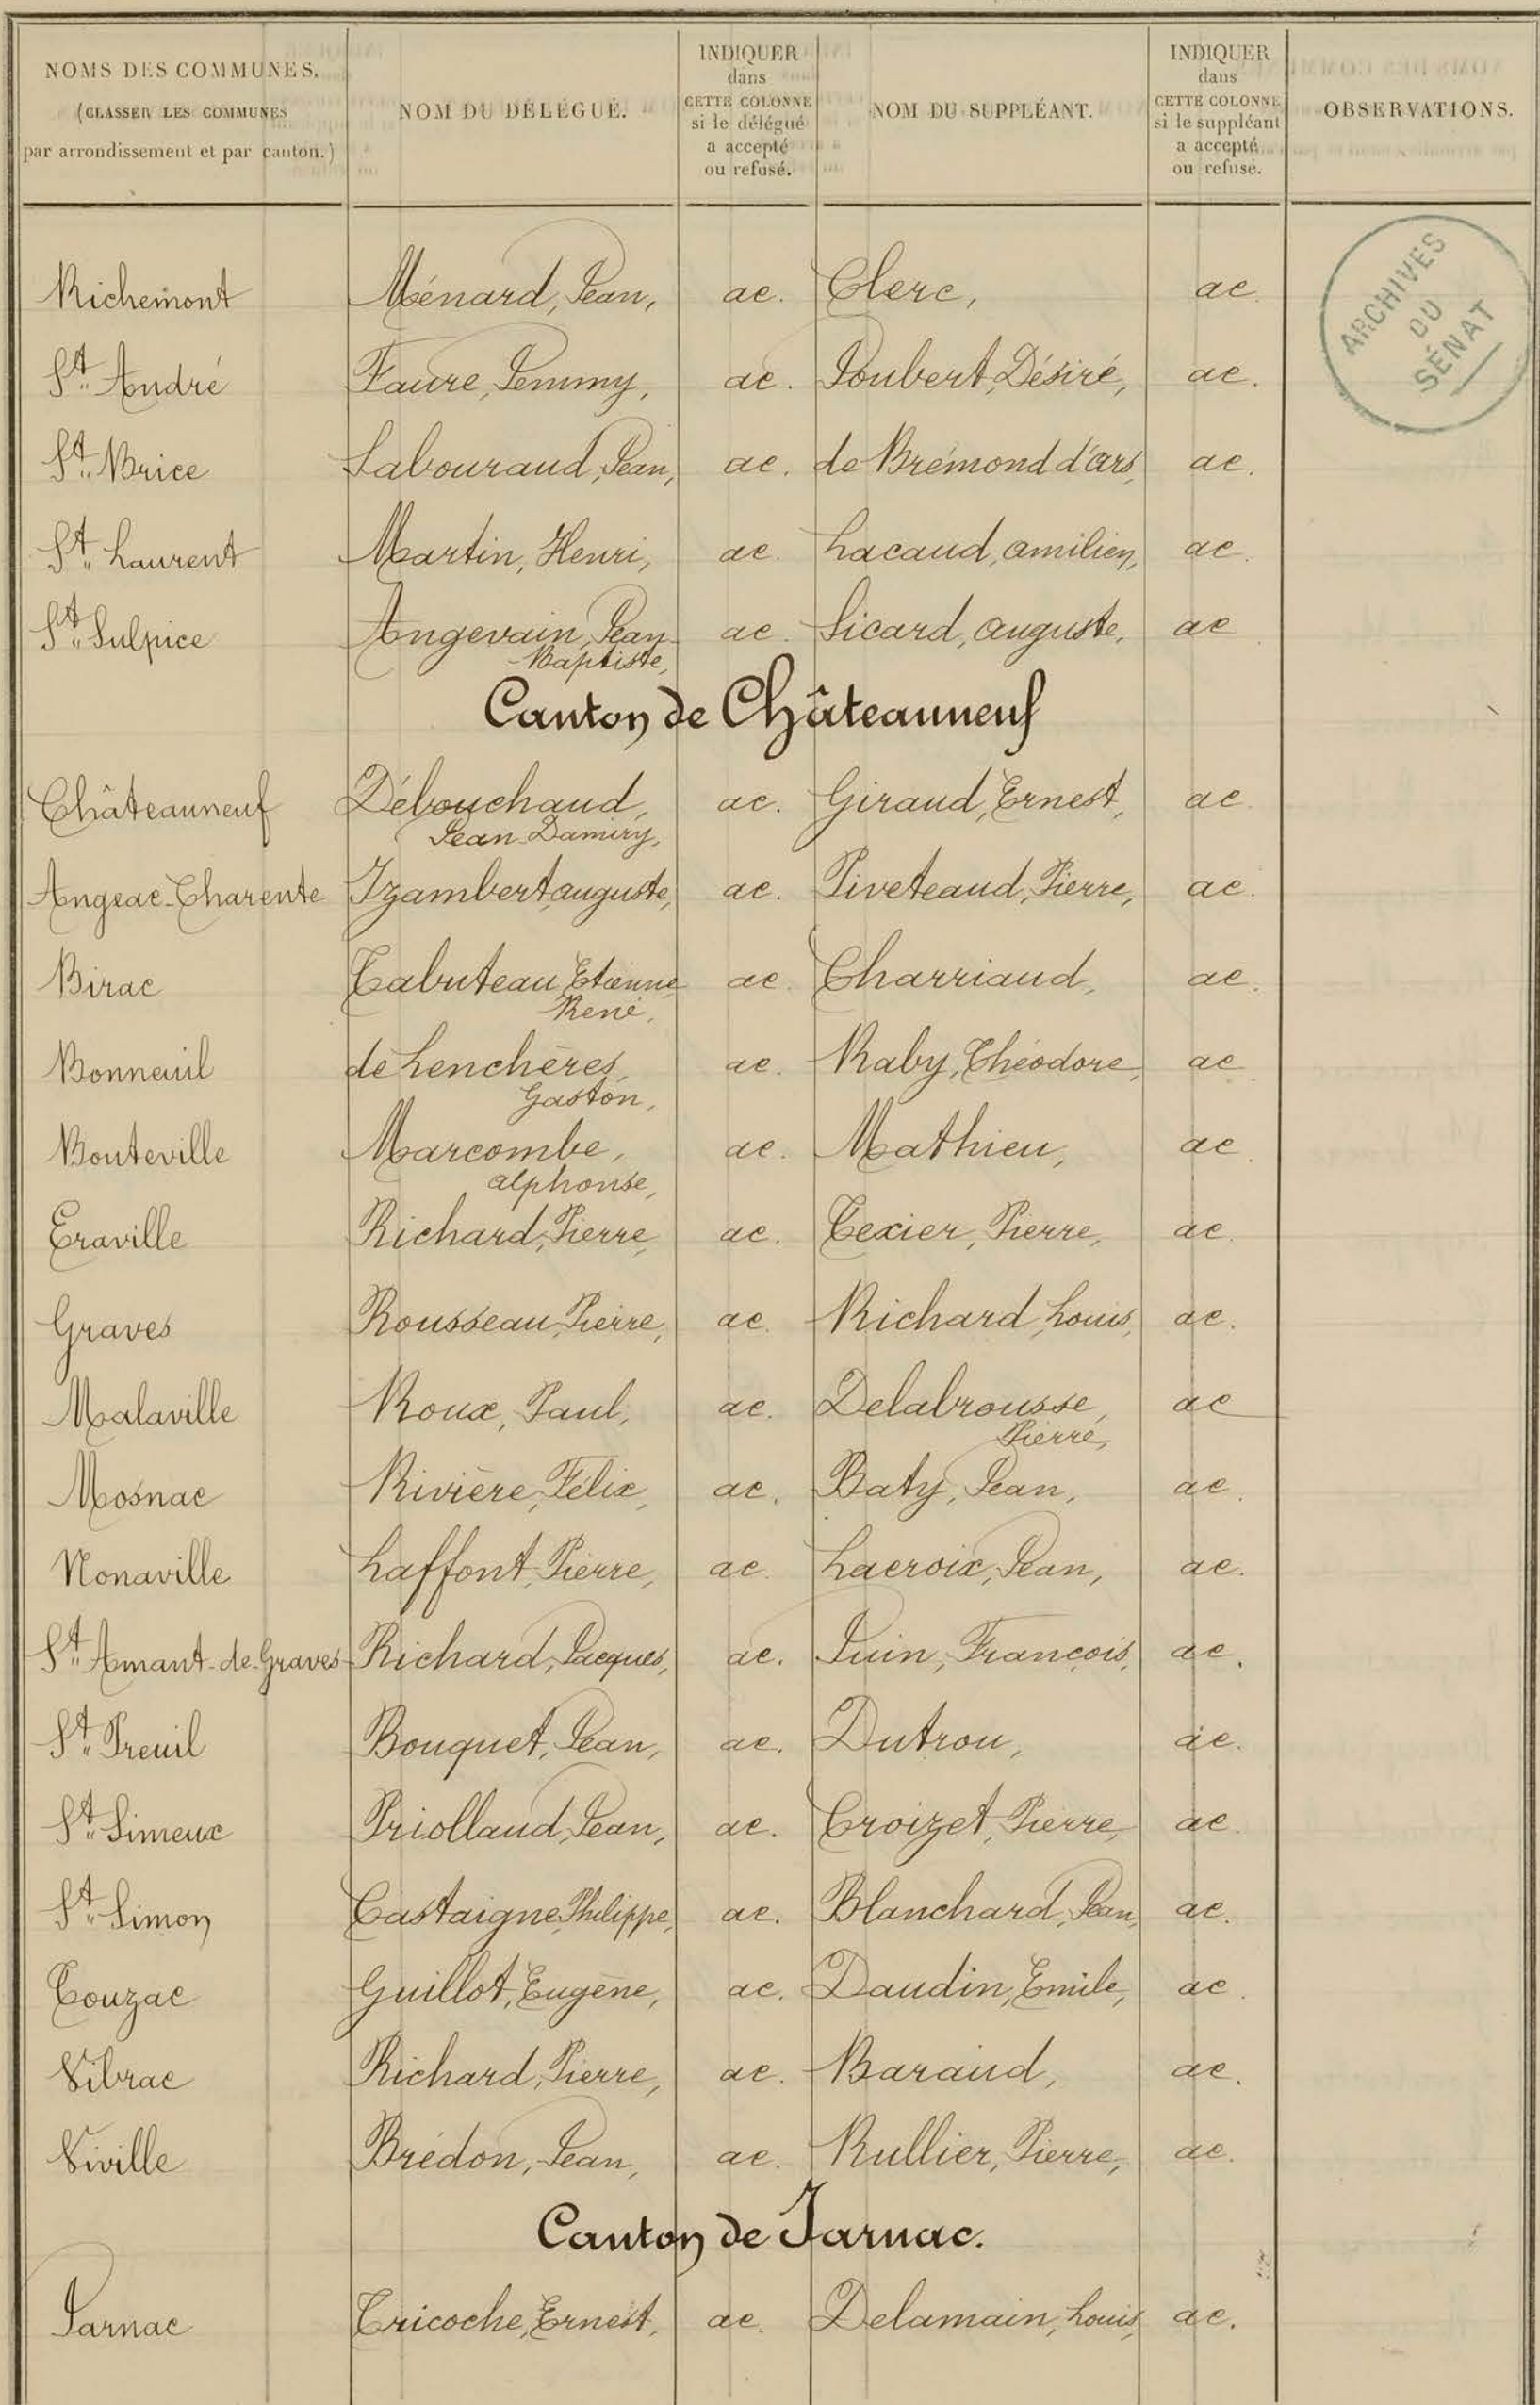 NOMS DES COMMUNES.
(CLASSER LES COMMUNES
par arrondissement et par canton.)
NOM DU DÉLÉGUÉ.
INDIQUER
dans
CETTE COLONNE
si le délégué
a accepté
ou refusé.
NOM DU SUPPLÉANT.
INDIQUER
dans
CETTE COLONNE
si le suppléant
a accepté
ou refusé.
OBSERVATIONS.
ARCHIVES
DU
SÉNAT
Richemont Ménard, Jean, ac. Clerc, ac.
St André Faure, Jemmy, ac. Joubert, Désiré, ac.
St Brice Labouraud, Jean, ac. de Brémond d'ars, ac.
St Laurent Martin, Henri, ac. Lacaud, amilien, ac.
St Sulpice Angevain, Jean ac. Sicard, auguste, ac
Baptiste,
Canton de Châteauneuf
Châteauneuf Débouchaud, ac. Giraud, Ernest, ac.
Jean Damiry,
Angeac-Charente Izambert, auguste, ac. Piveteaud, Pierre, ac.
Birac Tabuteau, Etienne ac. Charriaud, ac.
René,
Bonneuil de Lenchères, ac. Raby, Théodore, ac
Gaston,
Bouteville Marcombe, ac. Mathieu, ac.
alphonse,
Eraville Richard, Pierre, ac. Texier, Pierre, ac.
Graves Rousseau, Pierre, ac. Richard, Louis, ac.
Malaville Roux, Paul, ac. Delabrousse, ac
Pierre,
Mosnac Rivière, Félix, ac. Baty, Jean, ac.
Nonaville Laffont, Pierre, ac. Lacroix, Jean, ac.
St Amant-de-Graves Richard, Jacques, ac. Juin, François, ac.
St Preuil Bouquet, Jean, ac. Dutrou, ac.
St Simeux Priolland, Jean, ac. Croizet, Pierre, ac.
St Simon Castaigne, Philippe, ac. Blanchard, Jean, ac.
Touzac Guillot, Eugène, ac. Daudin, Emile, ac.
Vibrac Richard, Pierre, ac. Baraud, ac.
Viville Brédon, Jean, ac. Rullier, Pierre, ac.
Canton de Jarnac.
Jarnac Tricoche, Ernest, ac. Delamain, Louis, ac.